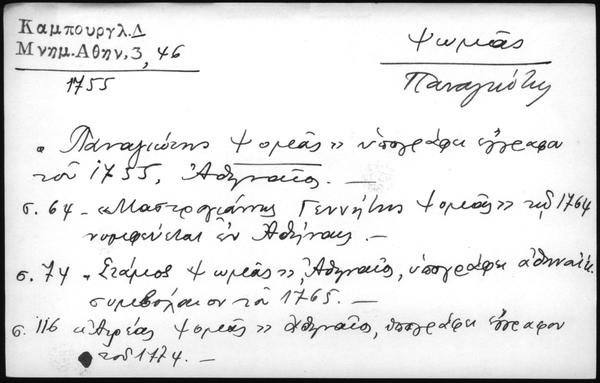 Καμπουργλ.Δ
Μνημ.Αθην,3, 46
1755
Ψωμᾶς
Παναγιώτης
"Παναγιώτης Ψομᾶς" ὑπογράφει ἔγγραφα
τοῦ 1755, Ἀθηναῖος. —
σ. 64 - «Μαστρογιάννης Γεννήτης Ψομᾶς» τῷ 1764
ἐν Ἀθήναις. —
σ. 74 - «Στάμος Ψωμᾶς», Ἀθηναῖος, ὑπογράφει
συμβόλαιον τοῦ 1765. —
σ. 116 Ψομᾶς» Ἀθηναῖος, ὑπογράφει ἔγγραφον
τοῦ 1774. —